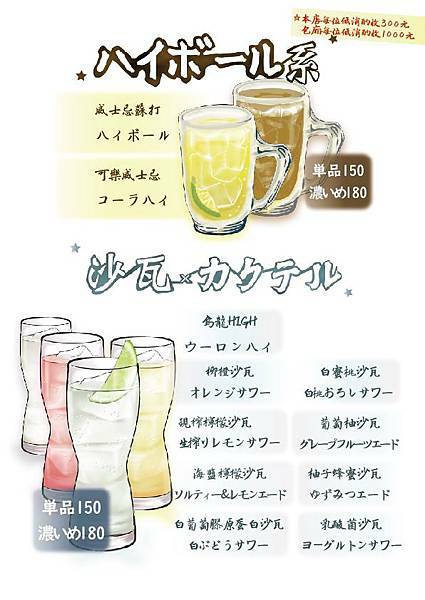 ☆本店每位低消酌收300元
包廂每位低消酌收1000元
ハイボール系
威士忌蘇打
ハイボール
可樂威士忌
コーラハイ
単品150
濃いめ180
沙瓦×カクテル
烏龍HIGH
ウーロンハイ
柳橙沙瓦
オレンジサワー
白蜜桃沙瓦
白桃おろしサワー
現榨檸檬沙瓦
生搾りレモンサワー
葡萄柚沙瓦
グレープフルーツエード
海鹽檸檬沙瓦
ソルティー&レモンエード
柚子蜂蜜沙瓦
ゆずみつエード
白葡萄膠原蛋白沙瓦
白ぶどうサワー
乳酸菌沙瓦
ヨーグルトンサワー
単品150
濃いめ180